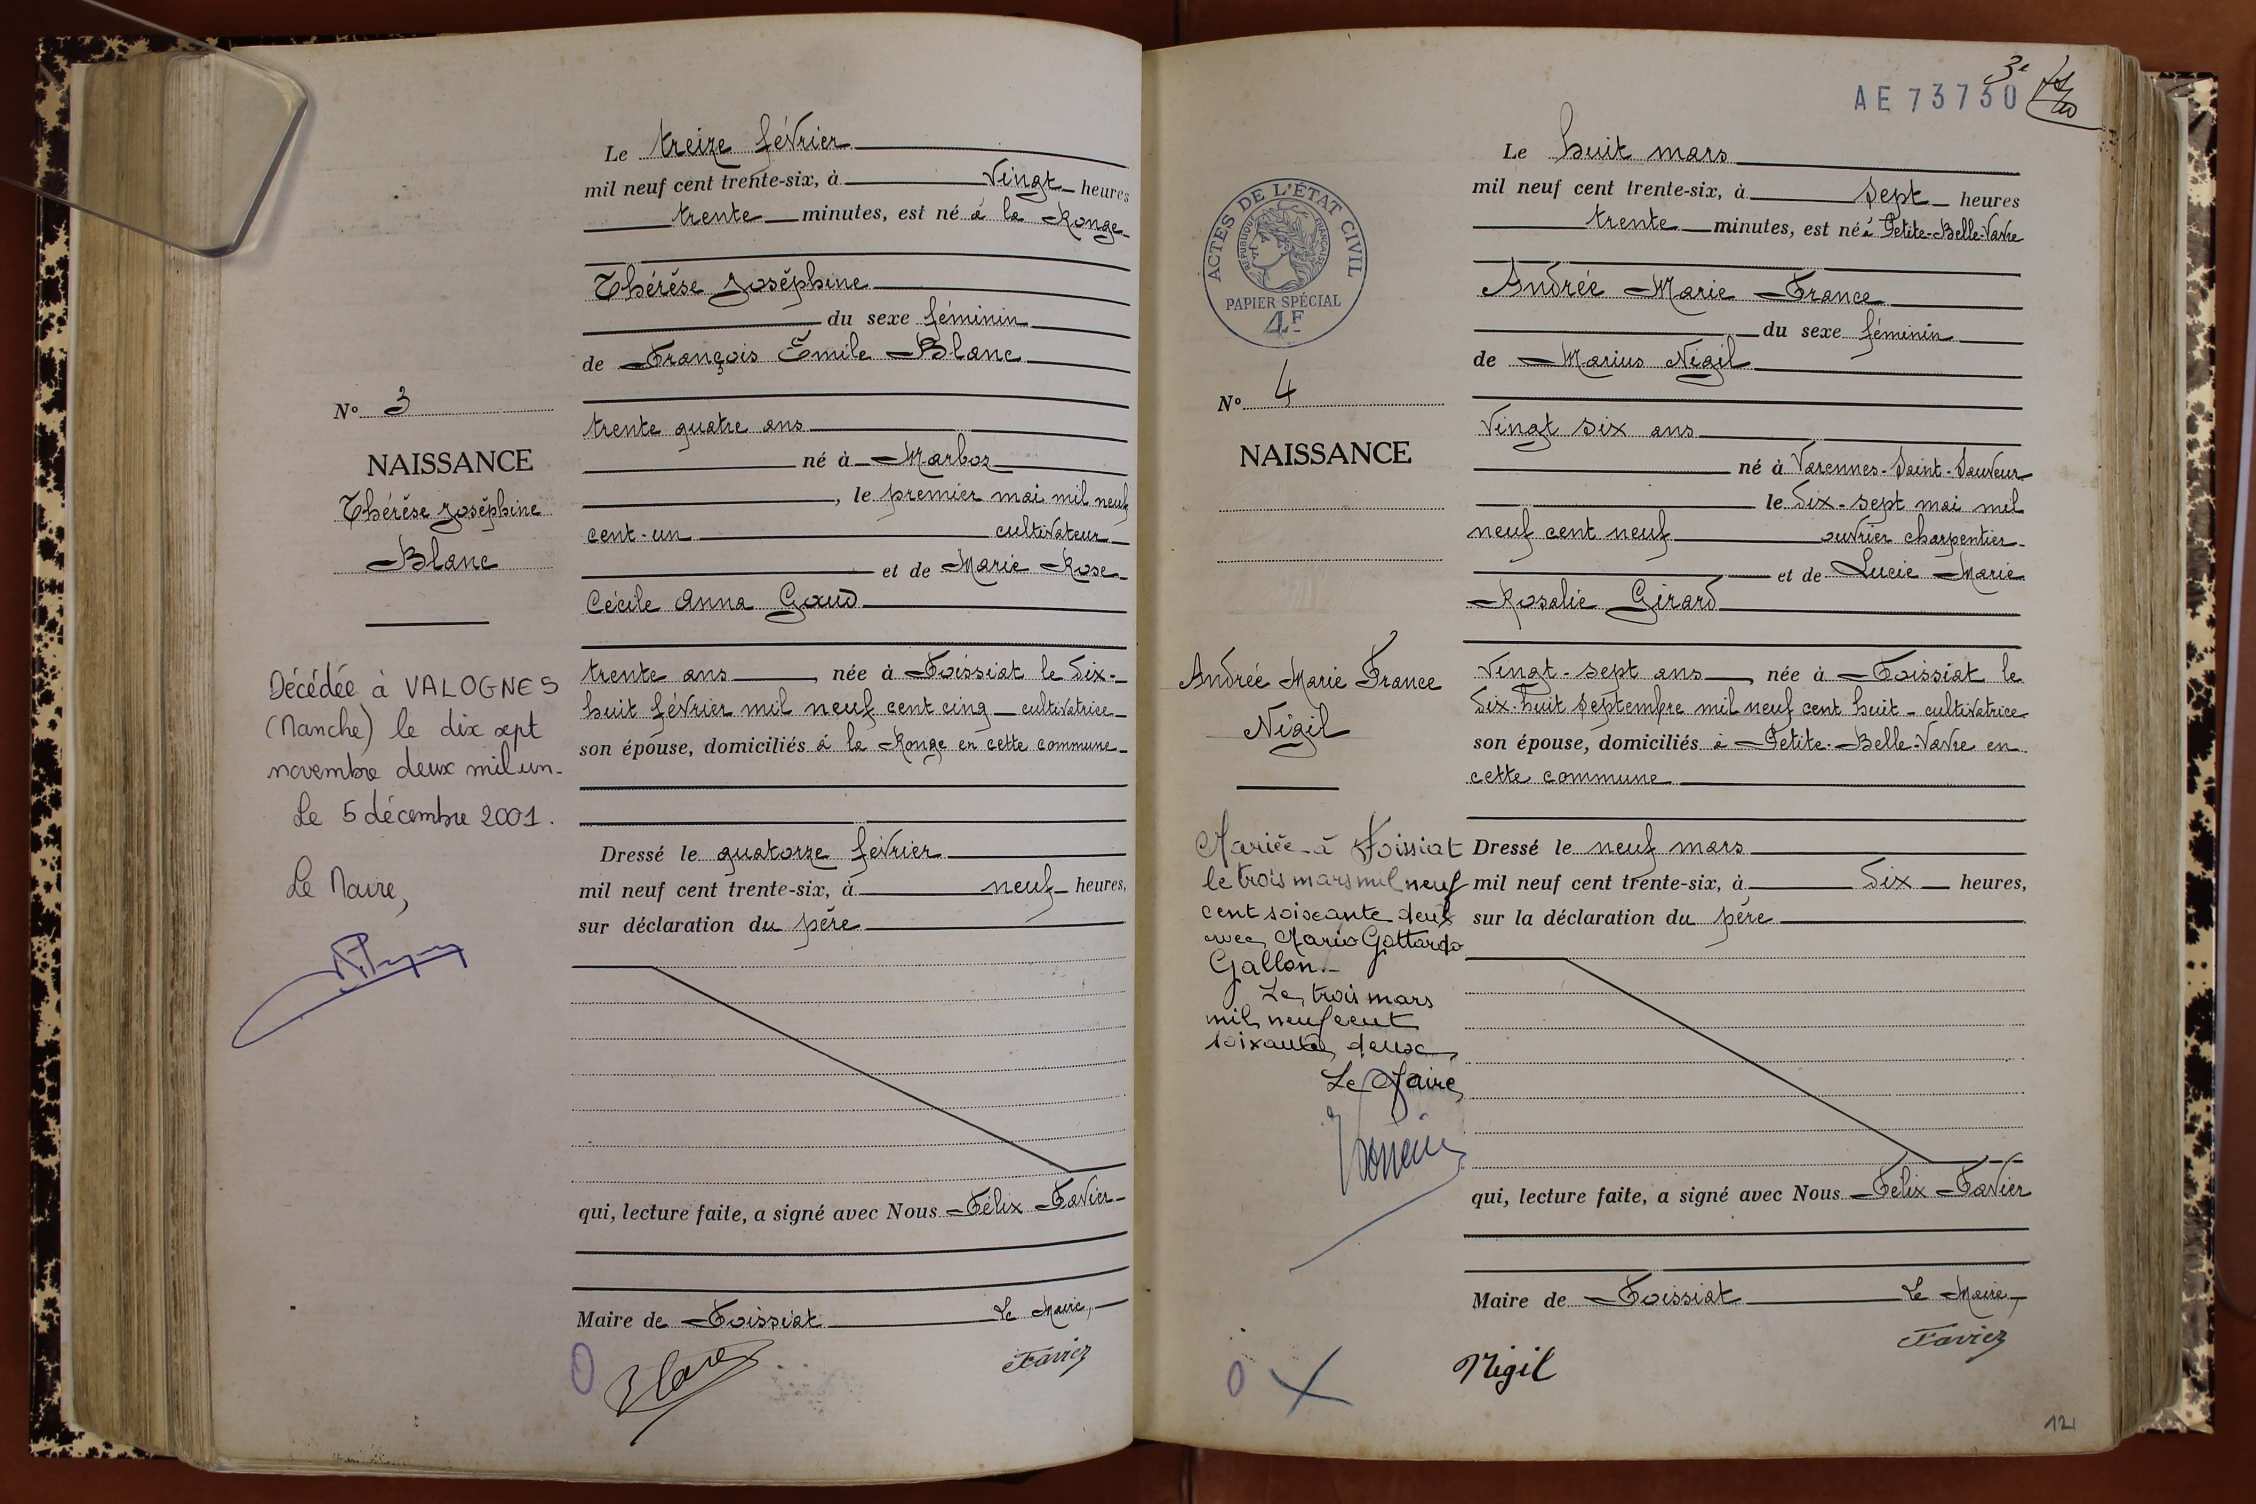 Le treize février
mil neuf cent trente-six, à vingt heures
trente minutes, est né à la Ronge
Thérèse Joséphine
du sexe féminin
de François Émile Blanc
N° 3
trente quatre ans
NAISSANCE
né à Marboz
Thérèse Joséphine
Blanc
, le premier mai mil neuf
cent-un cultivateur
et de Marie Rose
Cécile Anna Goud
trente ans, née à Foissiat le dix-
huit février mil neuf cent cinq cultivatrice
son épouse, domiciliés à la Ronge en cette commune
Décédée à VALOGNES
(Manche) le dix sept
novembre deux mil un.
Le 5 décembre 2001.
Le Maire,
Dressé le quatorze février
mil neuf cent trente-six, à neuf heures,
sur déclaration du père
qui, lecture faite, a signé avec Nous Félix Favier
Maire de Foissiat Le Maire,
Blanc
Favier
3e
AE 73730
Le huit mars
mil neuf cent trente-six, à sept heures
trente minutes, est né à Petite-Belle-Vavre
ACTES DE L'ÉTAT CIVIL
RÉPUBLIQUE FRANÇAISE
PAPIER SPÉCIAL
4F
Andrée Marie France
du sexe féminin
de Marius Nigil
N° 4
vingt six ans
NAISSANCE
né à Varennes-Saint-Sauveur
le dix-sept mai mil
neuf cent neuf ouvrier charpentier
et de Lucie Marie
Rosalie Girard
Andrée Marie France
Nigil
vingt-sept ans, née à Foissiat le
dix-huit septembre mil neuf cent huit - cultivatrice
son épouse, domiciliés à Petite-Belle-Vavre en
cette commune
Mariée à Foissiat
le trois mars mil neuf
cent soixante deux
avec Mario Gottardo
Gallon.
Le trois mars
mil neuf cent
soixante deux
Le Maire
Dressé le neuf mars
mil neuf cent trente-six, à dix heures,
sur la déclaration du père
qui, lecture faite, a signé avec Nous Félix Favier
Maire de Foissiat Le Maire,
Nigil
Favier
12